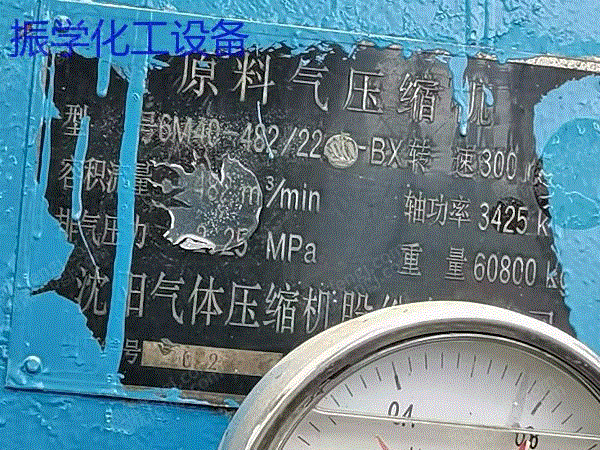 振学化工设备
原料气压缩机
型 号 6M40-482/22 -BX 转 速 300
容积流量 48 m³/min 轴功率 3425 k
排气压力 25 MPa 重 量 60800 kg
沈阳气体压缩机股份
号 62
0.4 0.6